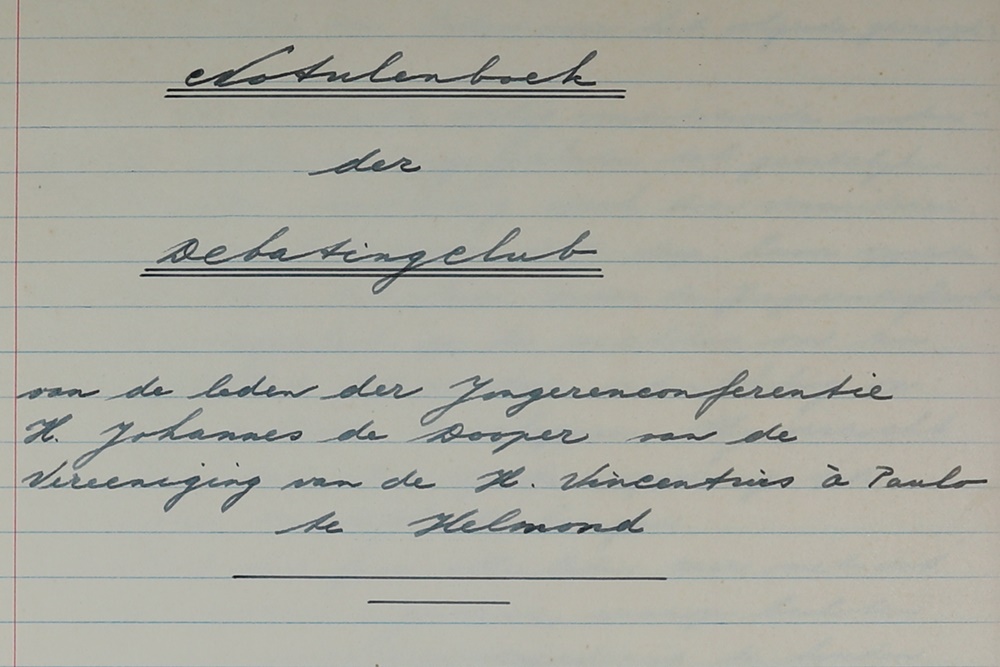 Notulenboek
der
Debatingclub
van de leden der Jongerenconferentie
H. Johannes de Dooper van de
Vereeniging van de H. Vincentius à Paulo
te Helmond